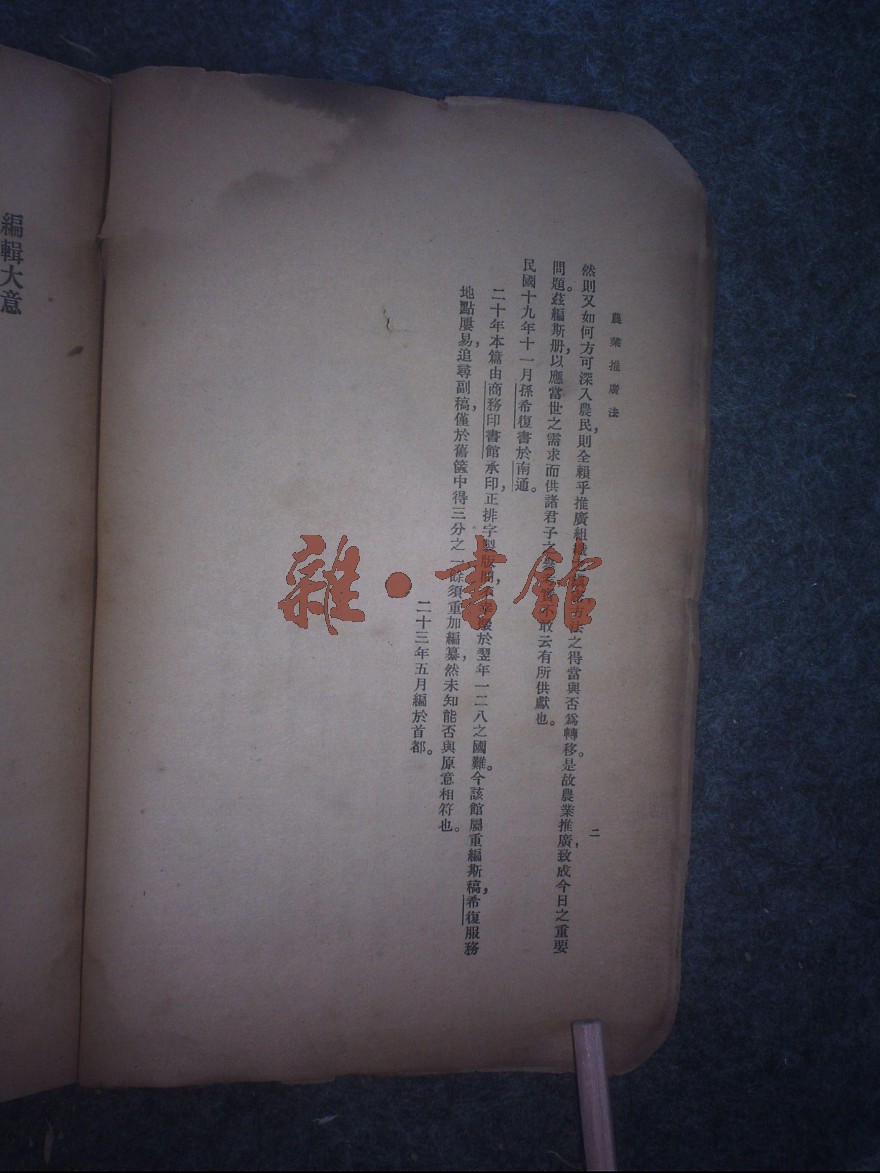 農業推廣法
二
然則又如何方可深入農民，則全賴乎推廣組之得當與否為轉移。是故農業推廣，致成今日之重要
問題。茲編斯册，以應當世之需求，而供諸君子之敢云有所供獻也。
民國十九年十一月孫希復書於南通。
二十年本篇由商務印書館承印，正排字製版間，於翌年一二八之國難。今該館屬重編斯稿，希復服務
地點屢易，追尋副稿，僅於舊篋中得三分之一，餘須重加編纂，然未知能否與原意相符也。
二十三年五月編於首都。
編輯大意
雜·書館